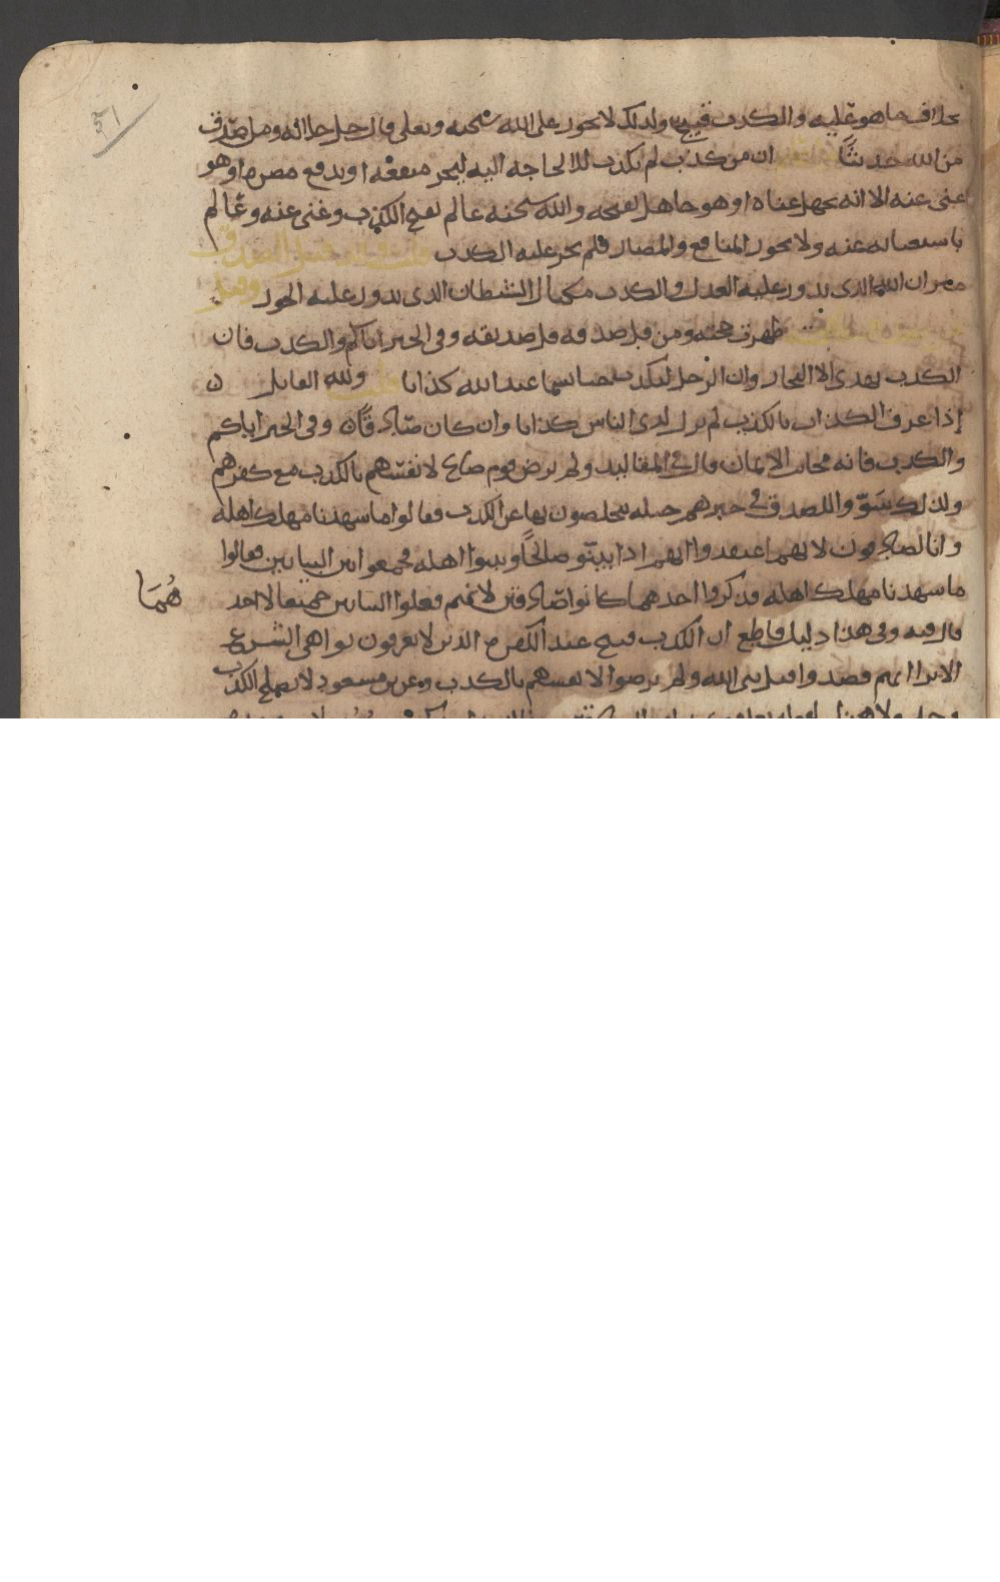 ٤٦
خلاف ما هو عليه والكذب قبيح ولذلك لا يجوز على الله سبحنه وتعلى قال جل جلاله ومن اصدق
من الله حديثا ان من كذب لم يكذب الا لحاجة اليه ليجر منفعة او يدفع مضره او هو
غنى عنه الا انه يجهل غناه او هو جاهل بقبحه والله سبحنه عالم بقبح الكذب وغنى عنه وعالم
باستغنائه عنه ولا يجوز المنافع والمضار فلم يجز عليه الكذب الصدق
ميزان الله الذى يدور عليه العدل والكذب مكيال الشيطان الذى يدور عليه الجور وقيل
ظهرت حجته ومن قل صدقه قل صديقه وفى الخبر اياكم والكذب فان
الكذب يهدى الا الفجار وان الرجل ليكذب حتا يسما عند الله كذابا ولله القايل
إذا عرف الكذاب بالكذب لم يزل لدى الناس كذابا وان كان صادقا وفى الخبر اياكم
والكذب فانه مجانب الايمان قال فى المقاليد ولم يرض قوم صالح لانفسهم بالكذب مع كفرهم
ولذلك سوّوا للصدق فى خبرهم حيله يتخلصون بها عن الكذب فقالوا ما شهدنا مهلك اهله
وانا لصادقون لانهم اعتقدوا انهم اذا بيتو صالحا وبيتوا اهله فجمعوا بين البياتين فقالوا
ما شهدنا مهلك اهله فذكروا احدهما كانوا صادقين لانهم فعلوا البياتين جميعا لا احد
هُمَا
قال فيه وفى هذا دليل قاطع ان الكذب قبيح عند الكفره الذين لا يعرفون نواهى الشرع
الا ترا انهم قصدوا قتل نبى الله ولم يرضوا لانفسهم بالكذب وعن بن مسعود لا يصلح الكذب